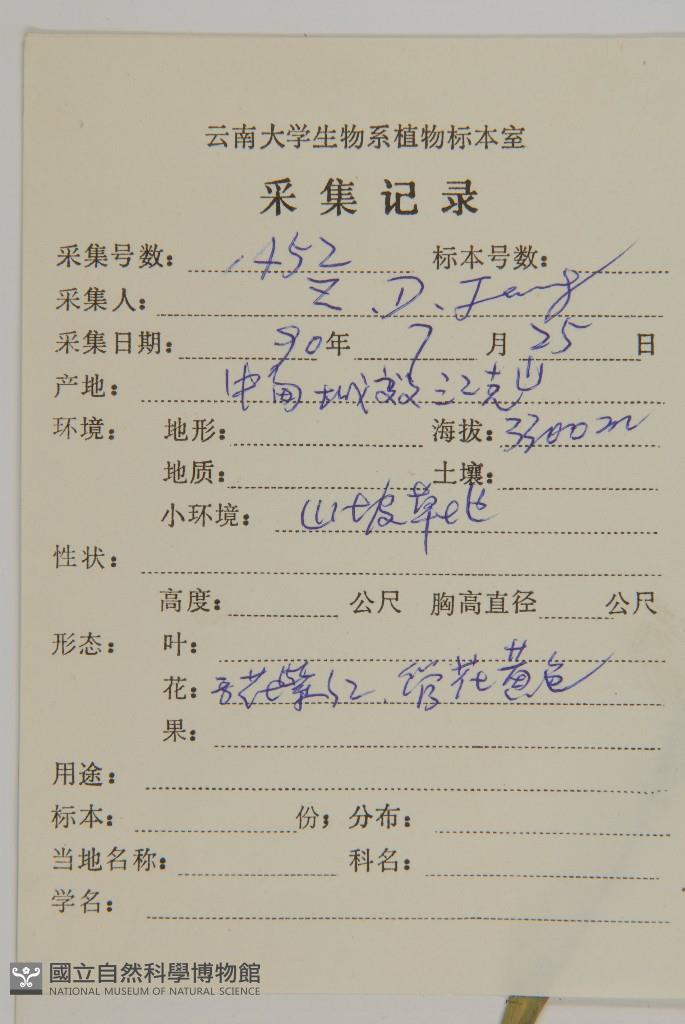 云南大学生物系植物标本室
采集记录
采集号数: 452 标本号数:
采集人: Z.D.
采集日期: 90年 7月 25日
产地: 中甸 山
环境: 地形: 海拔: 3300m
地质: 土壤:
小环境: 山坡草地
性状:
高度: 公尺 胸高直径 公尺
形态: 叶:
花: 舌花紫红.管花黄色
果:
用途:
标本: 份; 分布:
当地名称: 科名:
学名:
國立自然科學博物館
NATIONAL MUSEUM OF NATURAL SCIENCE